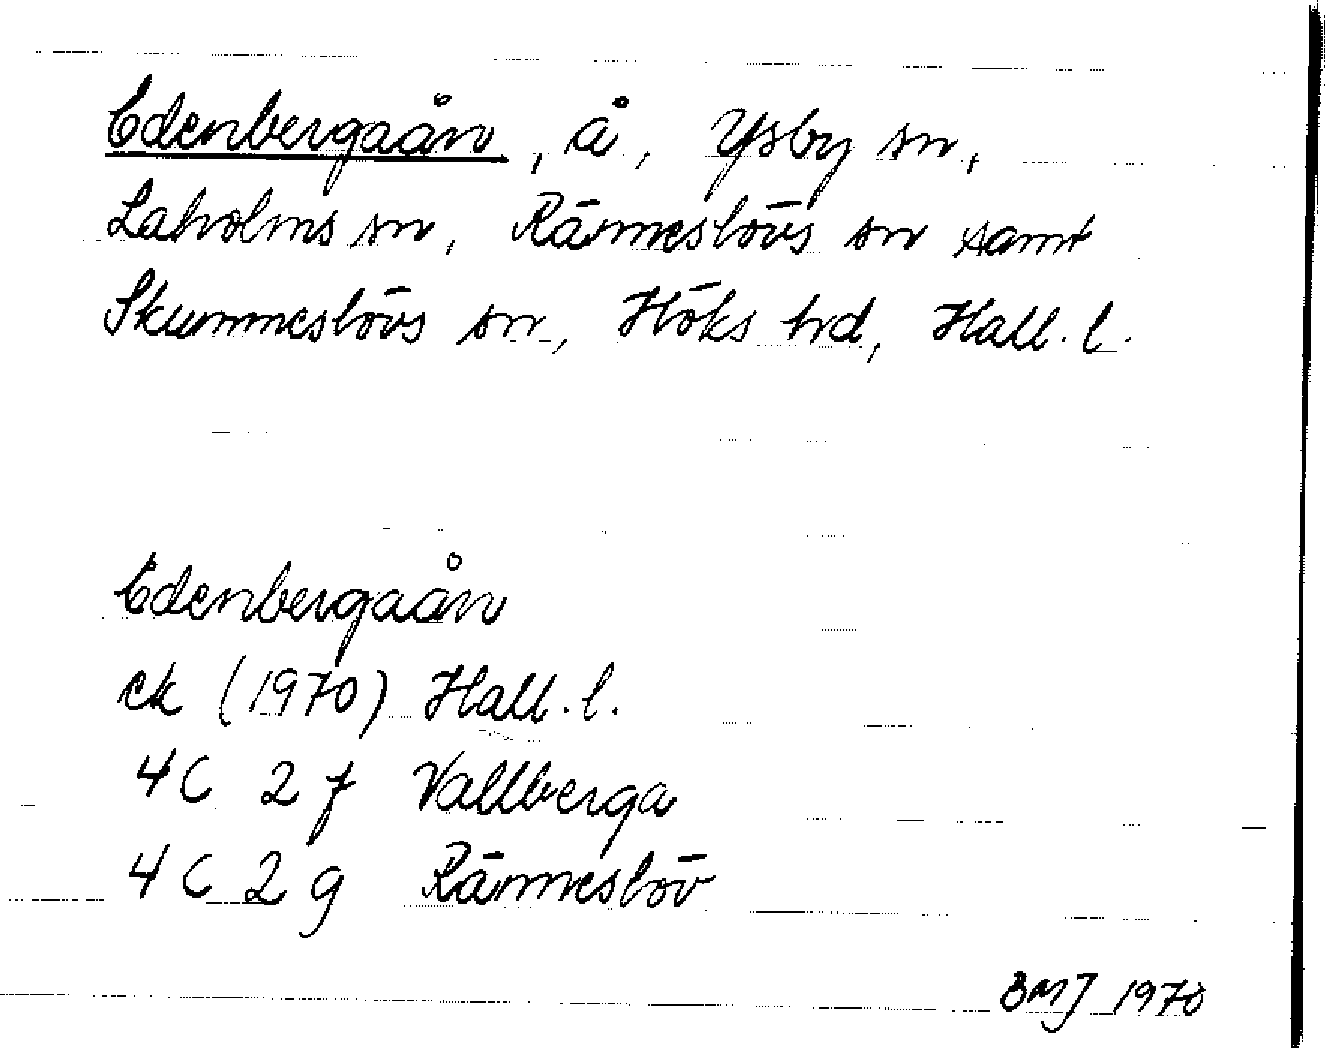 Edenbergaån, å, Ysby sn,
Laholms sn, Ränneslövs sn samt
Skummeslövs sn, Höks hd, Hall. l.
Edenbergaån
ek (1970) Hall. l.
4C 2f Vallberga
4C 2g Ränneslöv
BMJ 1970